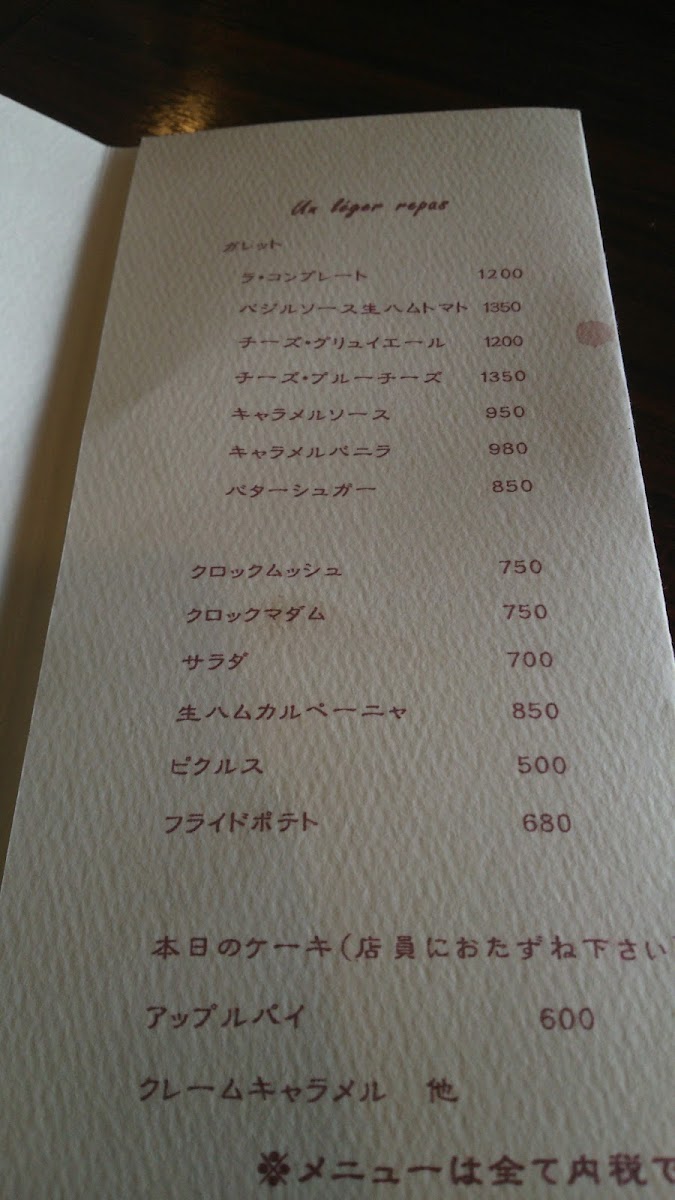 Un léger repas
ガレット
ラ・コンプレート 1200
バジルソース生ハムトマト 1350
チーズ・グリュイエール 1200
チーズ・ブルーチーズ 1350
キャラメルソース 950
キャラメルバニラ 980
バターシュガー 850
クロックムッシュ 750
クロックマダム 750
サラダ 700
生ハムカルペーニャ 850
ピクルス 500
フライドポテト 680
本日のケーキ(店員におたずね下さい)
アップルパイ 600
クレームキャラメル 他
※メニューは全て内税で